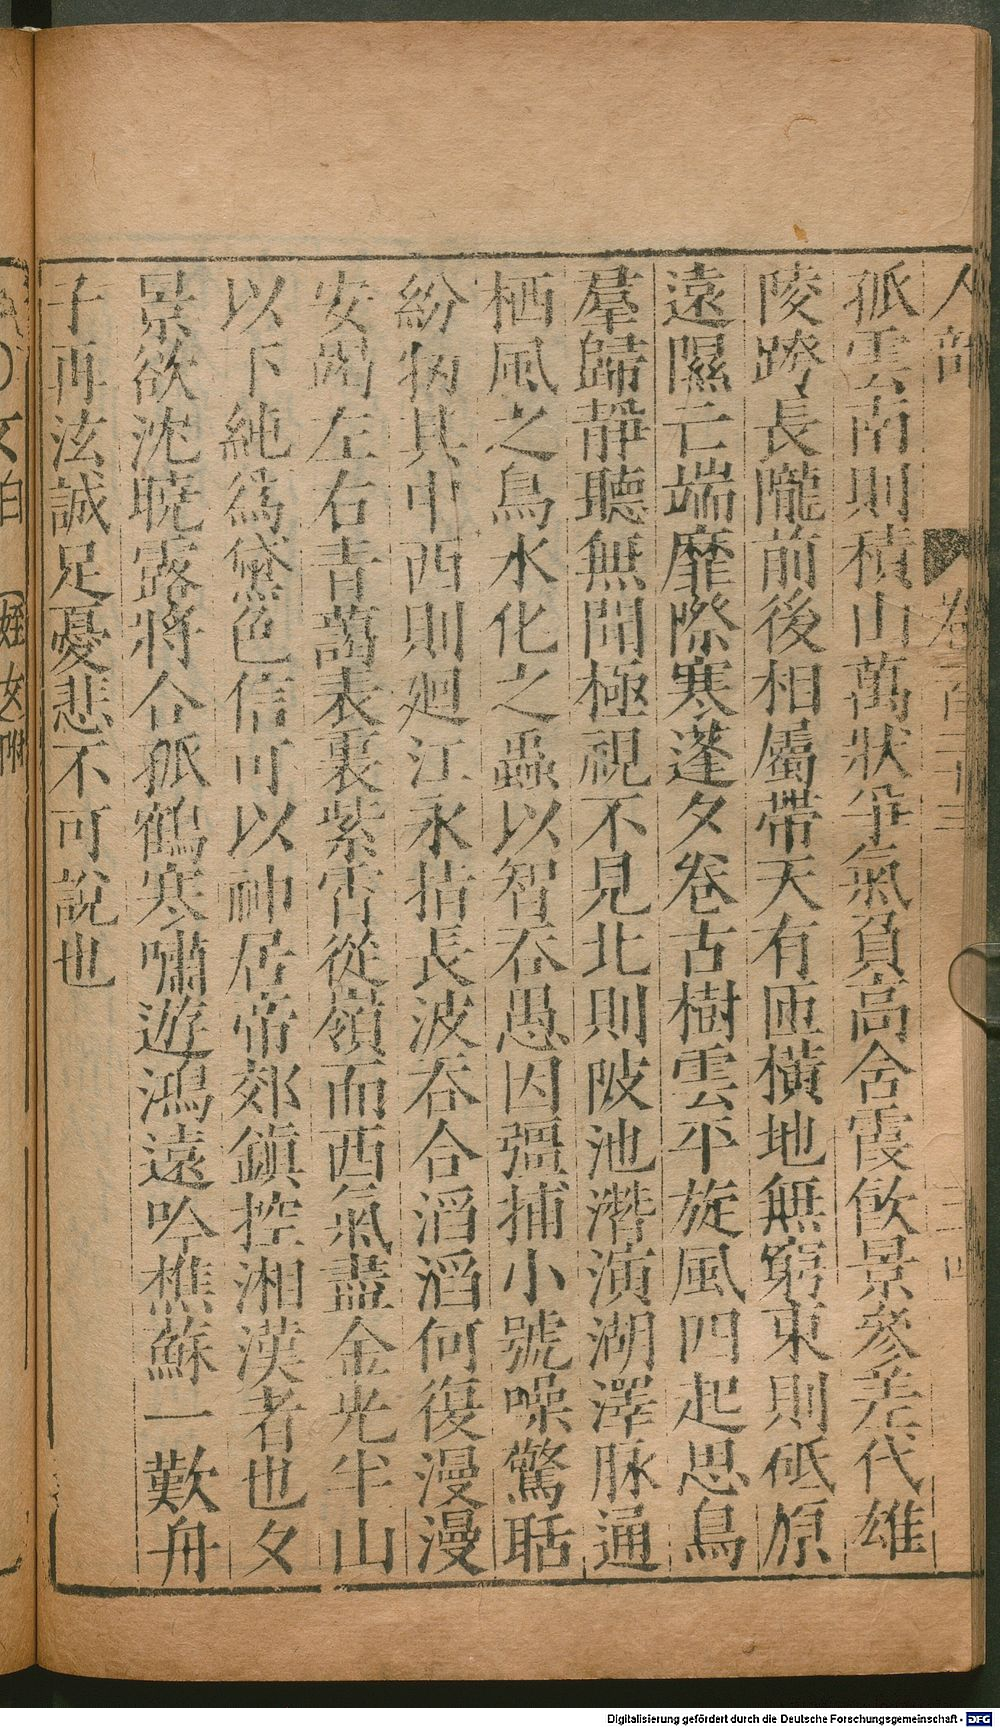 人部 卷 百二十三 三四
孤雲南則積山萬狀爭氣負高含霞飲景參差代雄
陵跨長隴前後相屬帶天有匝橫地無窮東則砥原
遠隰亡端靡際寒蓬夕卷古樹雲平旋風四起思鳥
羣歸靜聽無聞極視不見北則陂池潛演湖澤脉通
栖風之鳥水化之蟲以智吞愚因彊捕小號噪驚聒
紛牣其中西則廻江永指長波吞合滔滔何復漫漫
安竭左右青藹表裏紫霄從嶺而西氣盡金光半山
以下純爲黛色信可以神居帝郊鎮控湘漢者也夕
景欲沈曉露將合孤鶴寒嘯遊鴻遠吟樵蘇一歎舟
子再泫誠足憂悲不可說也
姪女附
Digitalisierung gefördert durch die Deutsche Forschungsgemeinschaft - DFG